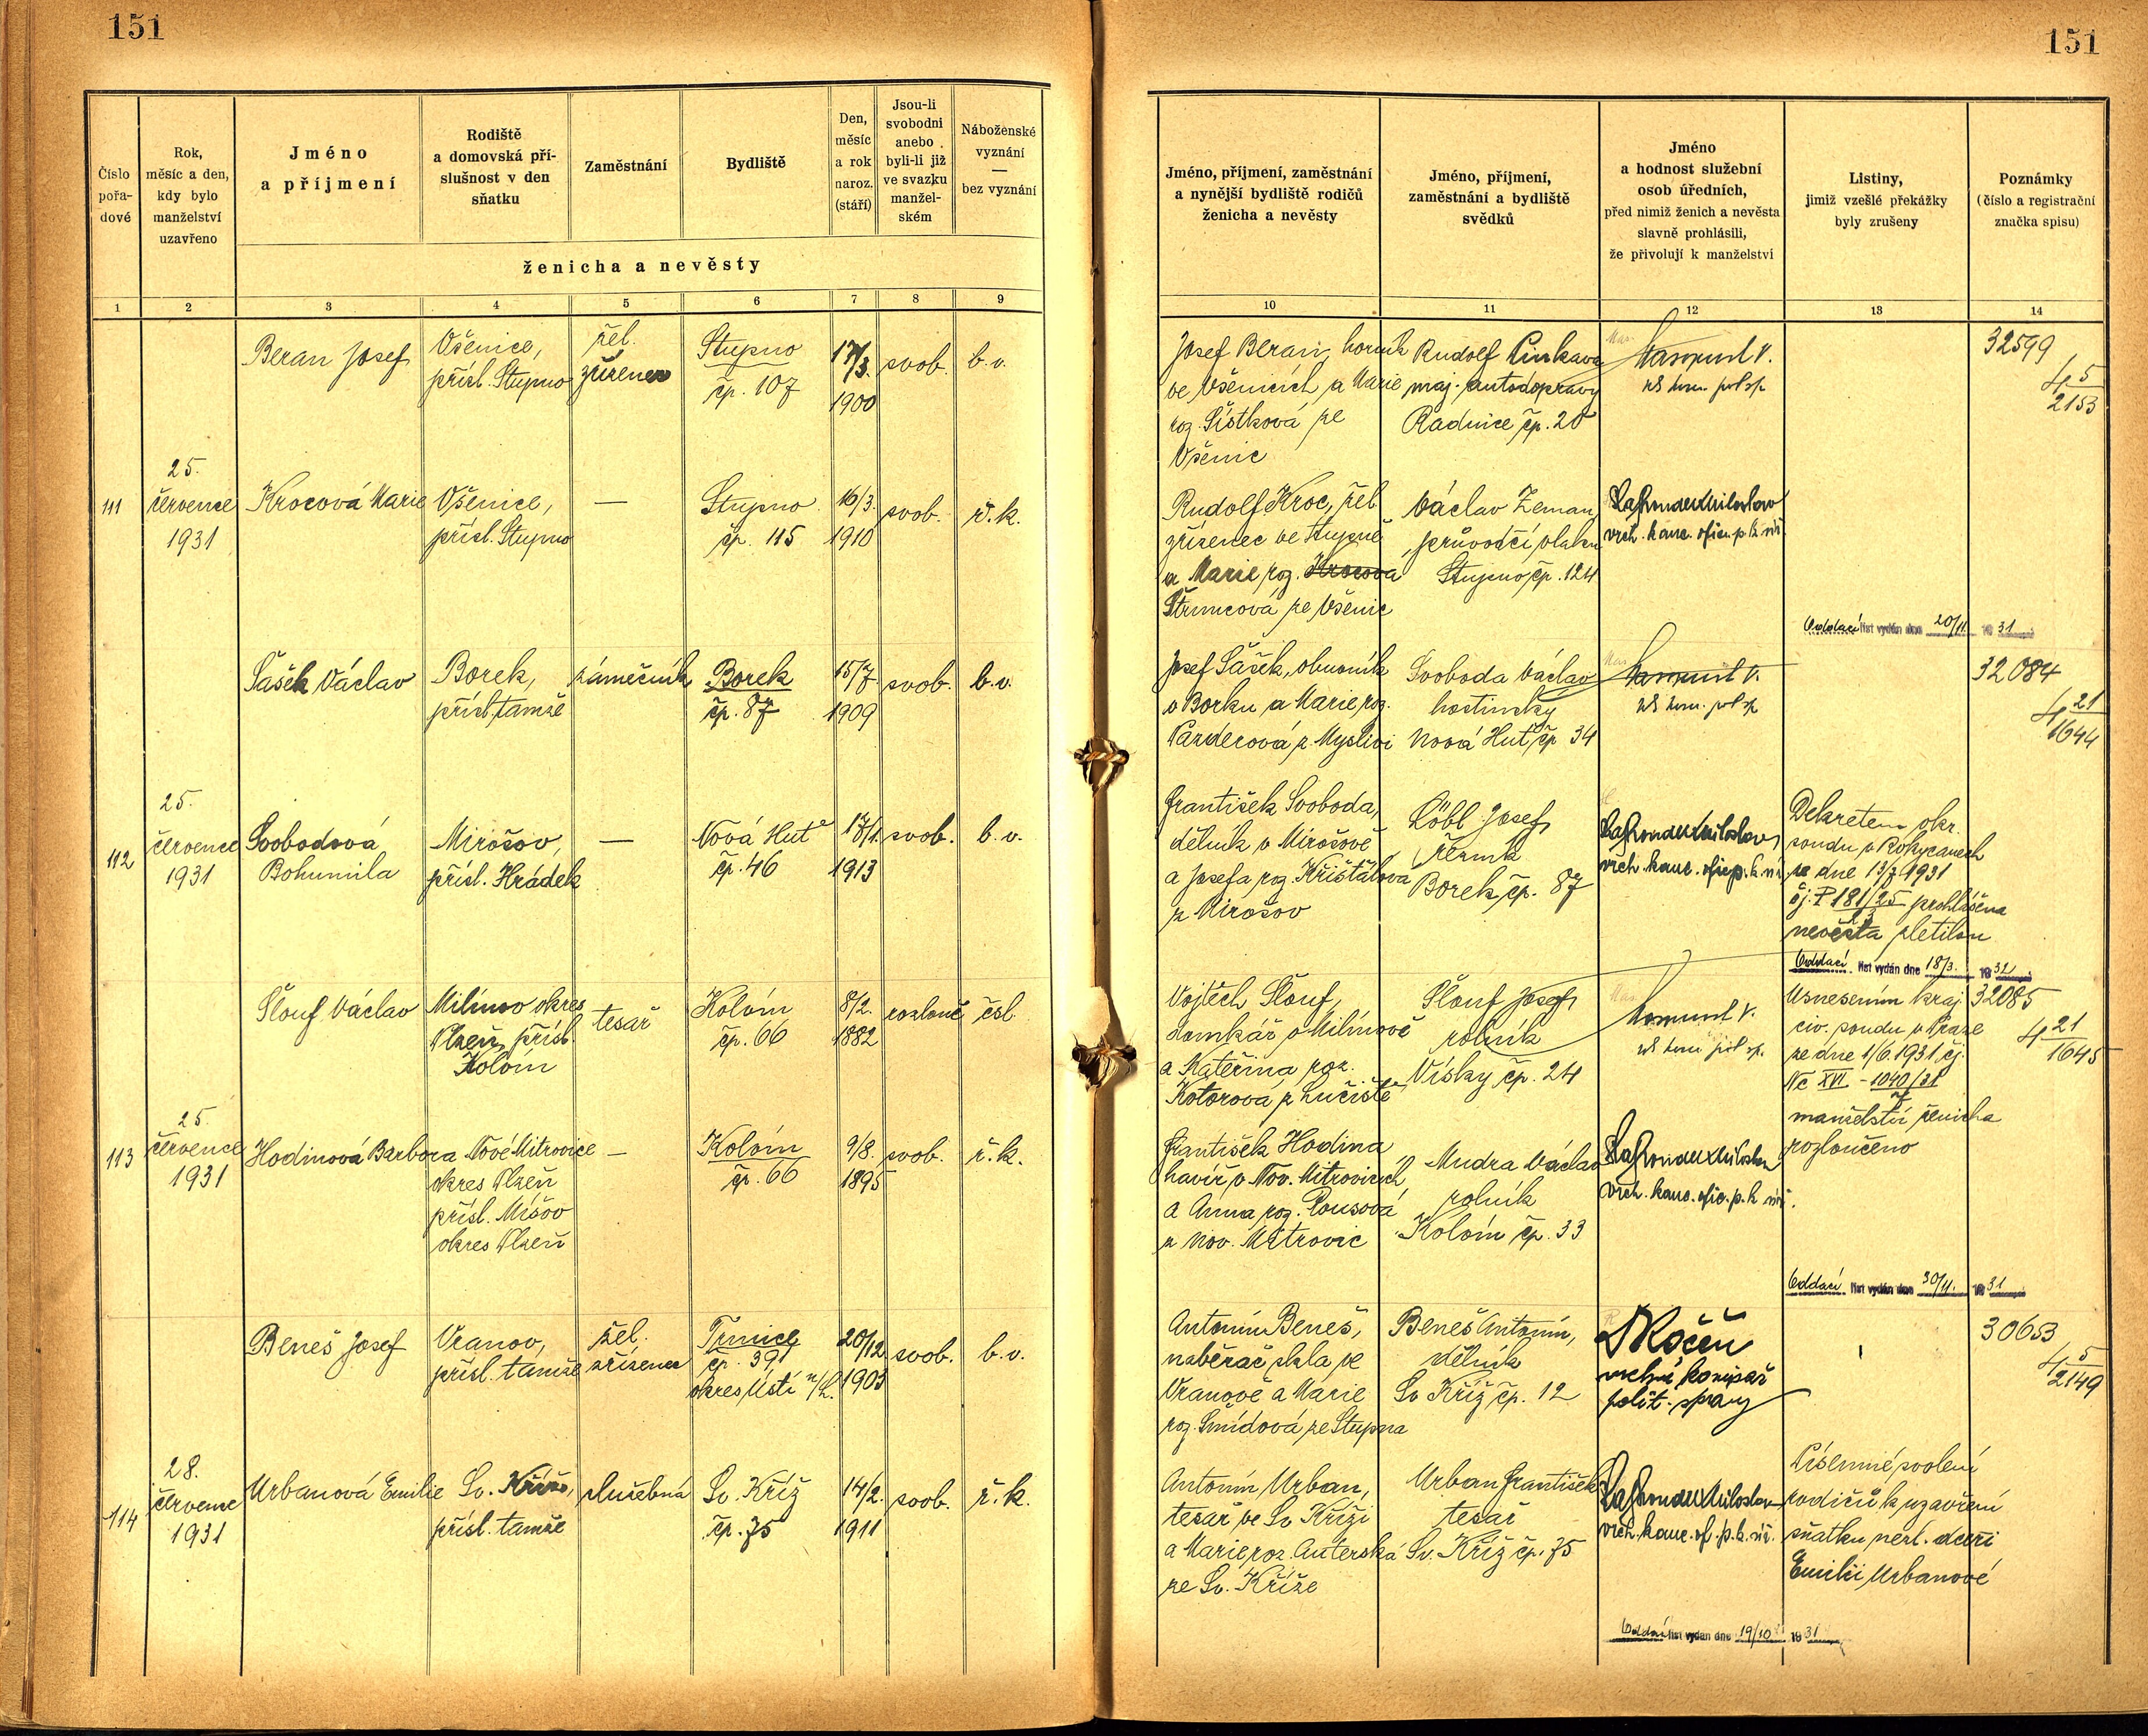 151
151
Číslo pořa-dové
Rok, měsíc a den, kdy bylo manželství uzavřeno
Jméno a příjmení
Rodiště a domovská pří-slušnost v den sňatku
Zaměstnání
Bydliště
Den, měsíc a rok naroz. (stáří)
Jsou-li svobodni anebo byli-li již ve svazku manžel-ském
Náboženské vyznání — bez vyznání
ženicha a nevěsty
1 2 3 4 5 6 7 8 9
Jméno, příjmení, zaměstnání a nynější bydliště rodičů ženicha a nevěsty
Jméno, příjmení, zaměstnání a bydliště svědků
Jméno a hodnost služební osob úředních, před nimiž ženich a nevěsta slavně prohlásili, že přivolují k manželství
Listiny, jimiž vzešlé překážky byly zrušeny
Poznámky (číslo a registrační značka spisu)
10 11 12 13 14
Beran Josef
Všenice,
přísl. Stupno
žel.
zřízenec
Stupno
čp. 107
17/3.
1900
svob.
b.v.
Josef Beran, horník
ve Všenicích a Marie
roz. Šístková ze
Všenic
Rudolf Cinkava
maj. autodopravy
Radnice čp. 20
32599
4 5/2153
111
25.
července
1931
Krocová Marie
Všenice,
přísl. Stupno
—
Stupno
čp. 115
16/3.
1910
svob.
ř.k.
Rudolf Kroc, žel.
zřízenec ve Stupně
a Marie roz. Krocova
ze Všenic
Václav Zeman
průvodčí vlaku
Stupno čp. 124
Miloslav
vrch. kanc. ofic. p.
Oddací list vydán dne 20/11. 1931
Šášek Václav
Borek,
přísl. tamže
zámečník
Borek
čp. 87
15/7
1909
svob.
b.v.
Josef Šášek, obuvník
v Borku a Marie roz.
Pazderová z Myslivi
Svoboda Václav
hostinský
Nová Huť čp 34
32084
4 21/1644
112
25.
července
1931
Svobodová
Bohumila
Mirošov,
přísl. Hrádek
—
Nová Huť
čp. 46
17/1.
1913
svob.
b.v.
František Svoboda,
dělník v Mirošově
a Josefa roz. Křišťálova
z Mirošov
Löbl Josef
řezník
Borek čp. 87
Miloslav
vrch. kanc. ofic. p.
Dekretem okr.
soudu v Rokycanech
ze dne 13/7 1931
čj. P 181/25 prohlášena
nevěsta zletilou
Oddací list vydán dne 18/3. 1932
Šlouf Václav
Milínov okres
Plzeň, přísl.
Kolvín
tesař
Kolvín
čp. 66
8/2.
1882
rozlouč
čsl.
Vojtěch Šlouf,
domkář v Milínově
a Kateřina roz.
Kotorová z Lučiště
Šlouf Josef
rolník
Vísky čp. 24
Usnesením kraj.
civ. soudu v Praze
ze dne 1/6. 1931 čj.
Nc XVI - 1040/31
manželství ženicha
rozloučeno
32085
4 21/1645
113
25.
července
1931
Hodinová Barbora
Nové Mitrovice
okres Plzeň
přísl. Míšov
okres Plzeň
—
Kolvín
čp. 66
9/8.
1895
svob.
ř.k.
František Hodina
havíř v Nov. Mitrovicích
a Anna roz. Pousová
z Nov. Mitrovic
Mudra Václav
rolník
Kolvín čp. 33
vrch. kanc. ofic. p.
Oddací list vydán dne 30/11. 1931
Beneš Josef
Vranov,
přísl. tamže
žel.
zřízenec
Trmice
čp. 391
okres Ústí n/L.
20/12
1903
svob.
b.v.
Antonín Beneš,
naběrač skla ve
Vranově a Marie
roz. Šmídová ze Stupna
Beneš Antonín,
dělník
Sv Kříž čp. 12
Kočěn
vrchní komisař
polit. správy
30653
4 5/2149
114
28.
července
1931
Urbanová Emilie
Sv. Kříž,
přísl. tamže
služebná
Sv. Kříž
čp. 75
14/2.
1911
svob.
ř.k.
Antonín Urban,
tesař ve Sv Kříži
a Marie roz. Auterská
ze Sv. Kříže
Urban František
tesař
Sv. Kříž čp. 75
Miloslav
vrch. kanc. of. p.
Písemné svolení
rodičů k uzavření
sňatku nezl. dceři
Emilii Urbanové
Oddací list vydán dne 19/10 1931